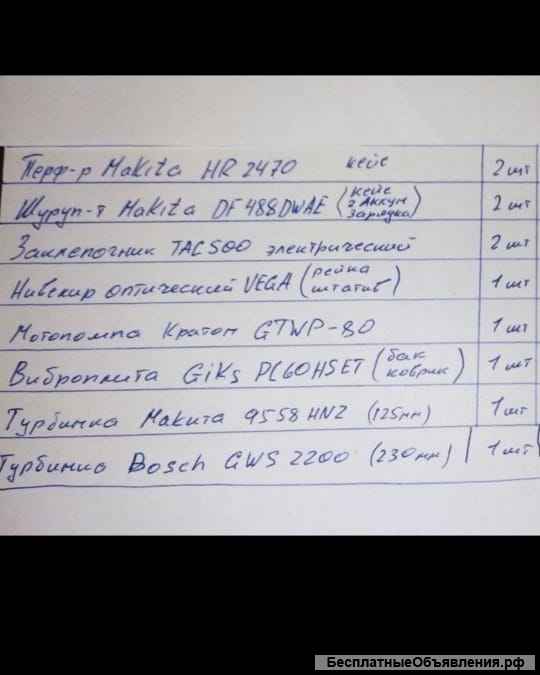 Перф-р Makita HR 2470 кейс 2 шт
Шуруп-т Makita DF488DWAE (кейс 2 Аккум зарядка) 2 шт
Заклепочник TAC500 электрический 2 шт
Нивелир оптический VEGA (рейка штатив) 1 шт
Мотопомпа Кратон GTWP-80 1 шт
Виброплита GiKs PC60HSET (бак коврик) 1 шт
Турбинка Макита 9558HNZ (125мм) 1 шт
Турбинка Bosch GWS 2200 (230мм) 1 шт
БесплатныеОбъявления.рф